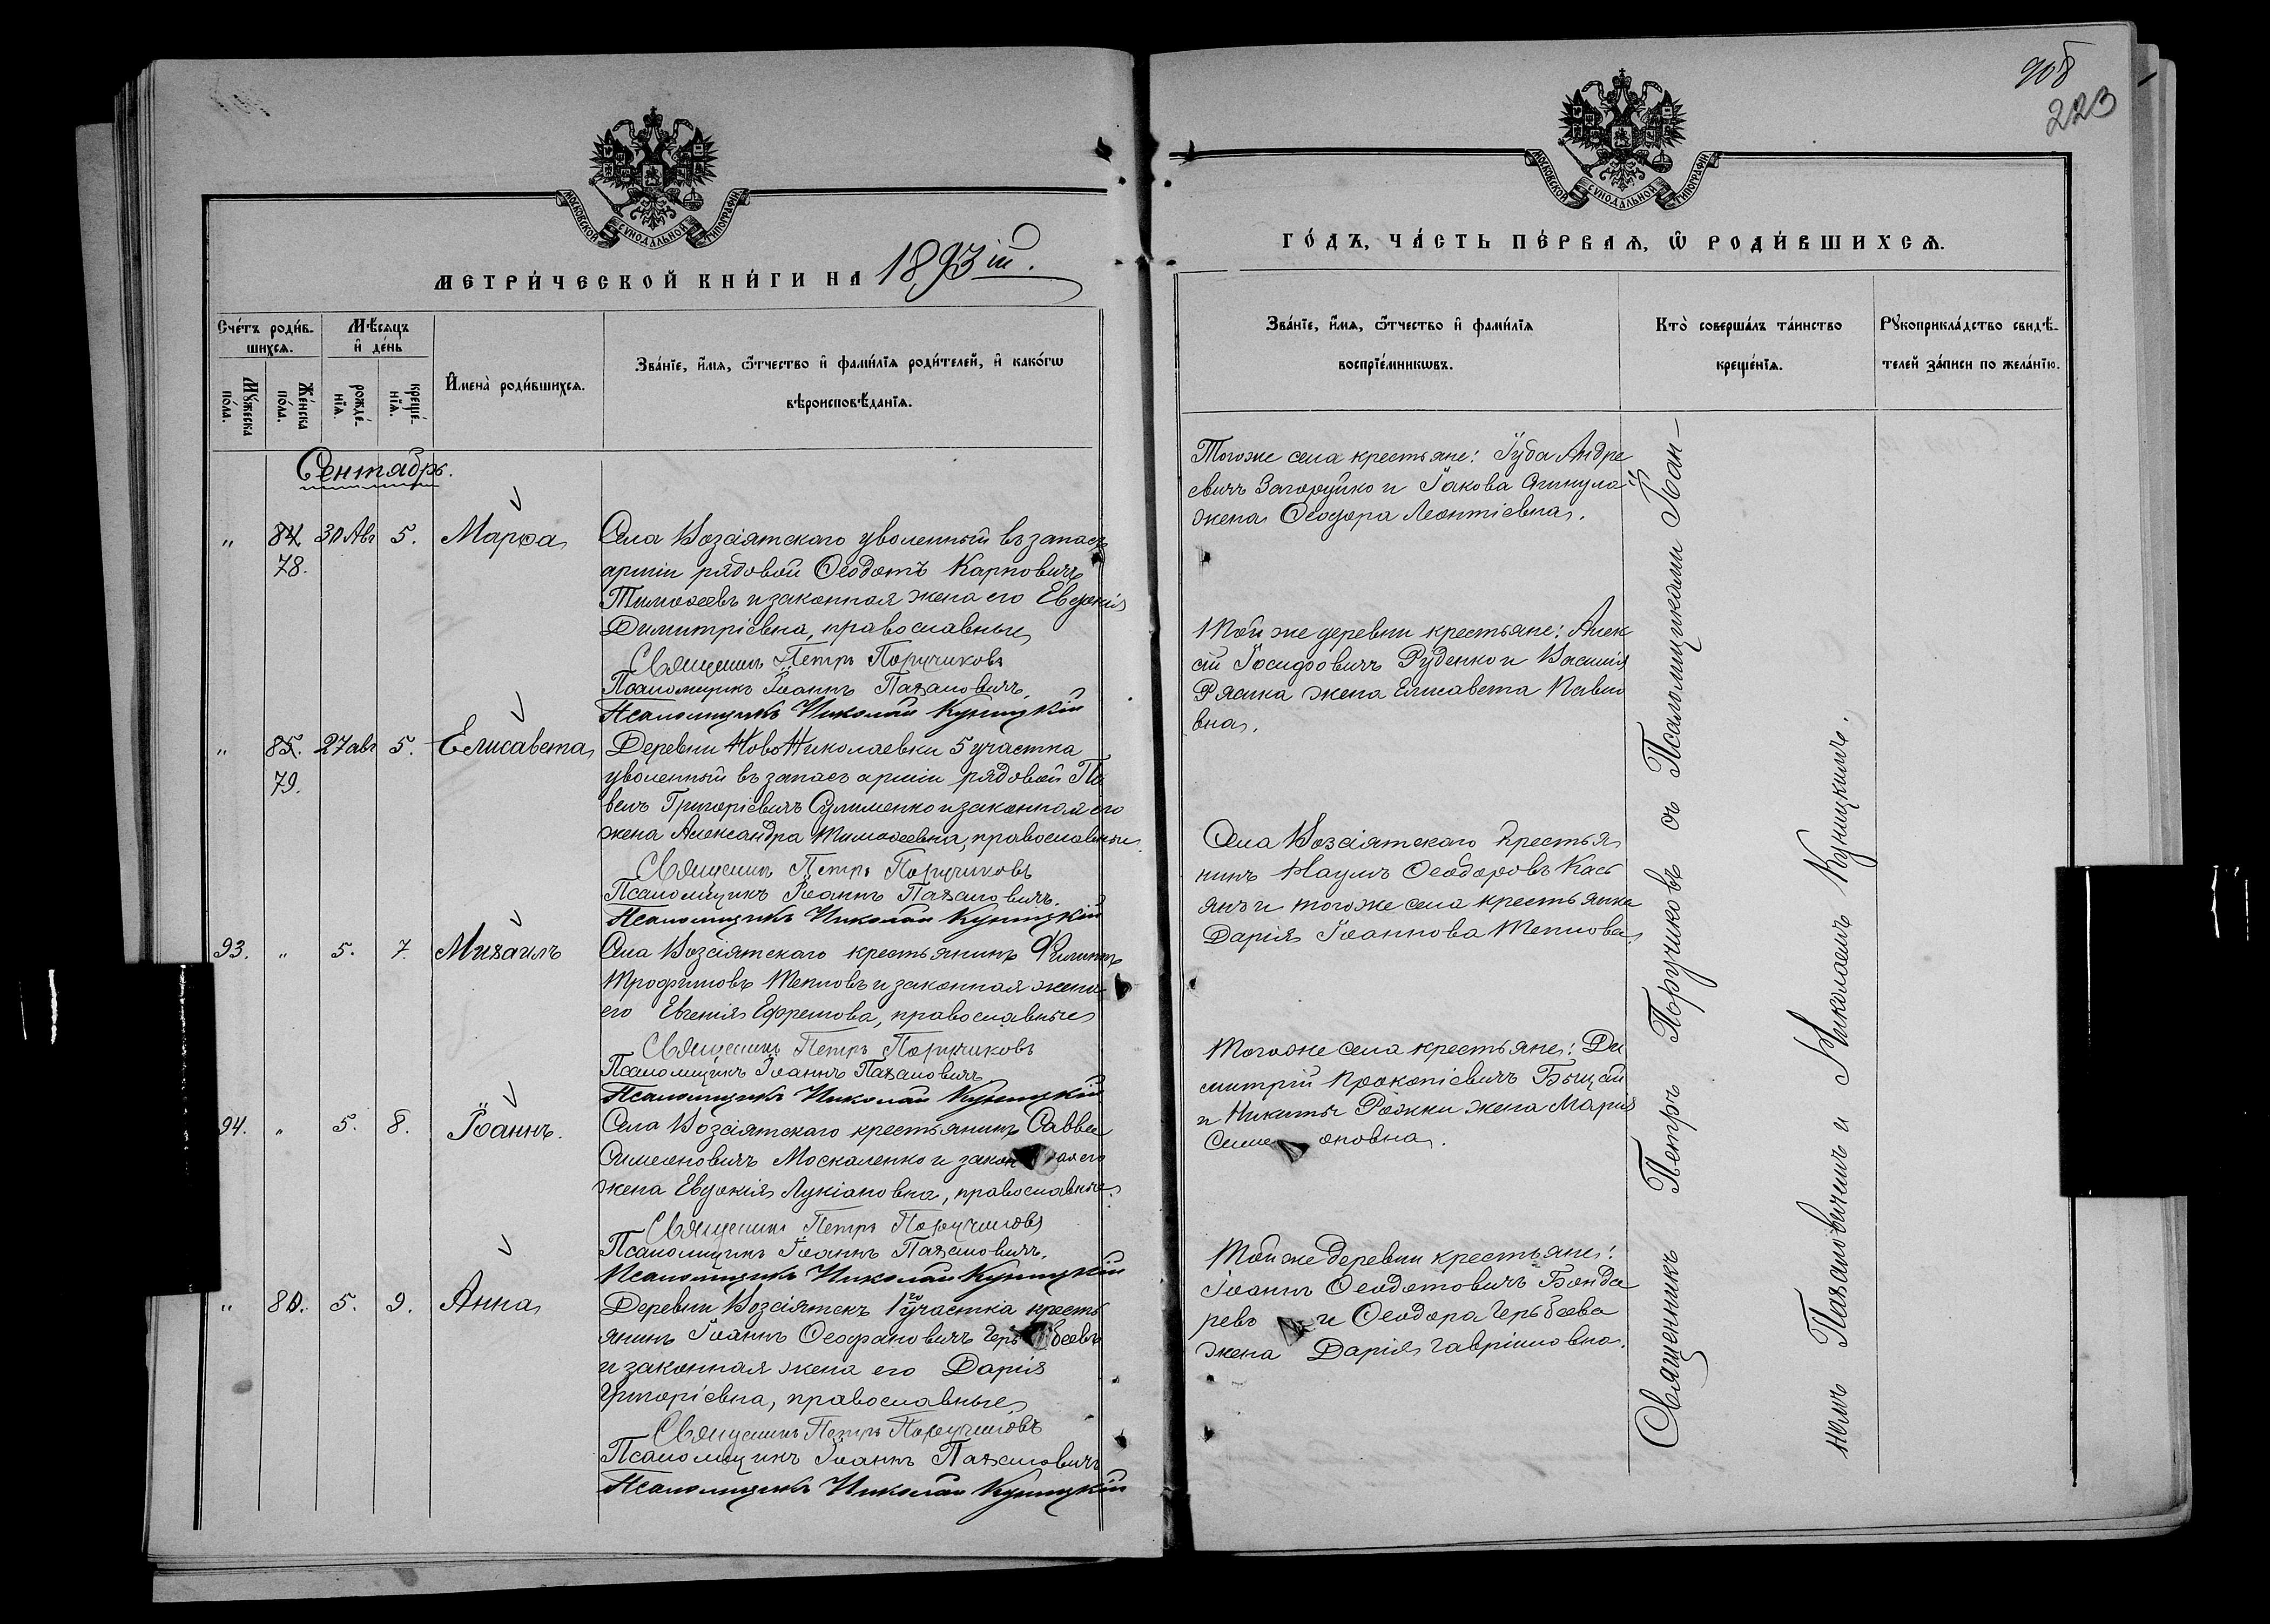 908
223
МОСКОВСКОЙ СѴНОДАЛЬНОЙ ТИПОГРАФІИ
МОСКОВСКОЙ СѴНОДАЛЬНОЙ ТИПОГРАФІИ
МЕТРИ́ЧЕСКОЙ КНИ́ГИ НА 1893ій.
Сче́тъ роди́в-
шихсѧ.
Мѣ́сяцъ
и҆ де́нь
Мꙋ́жеска
по́ла.
Же́нска
по́ла.
рожде́-
нїѧ.
креще́-
нїѧ.
И҆мена̀ роди́вшихсѧ.
Зва́нїе, и҆́мѧ, ѻ҆́тчество и҆ фами́лїѧ роди́телей, и҆ како́гѡ
вѣроисповѣ́данїѧ.
Сентябрь.
„ 84. 30 Авг 5. Марѳа
78.
Села Возсіятскаго уволенный въ запасъ
арміи рядовой Ѳеодотъ Карповичъ
Тимоѳеевъ и законная жена его Евдокія
Димитріевна, православные
Священникъ Петръ Поручиковъ
Псаломщикъ Іоаннъ Пахановичъ.
Псаломщикъ Николай Куницкій
„ 85. 27 авг 5. Елисавета
79.
Деревни НовоНиколаевки 5 участка
уволенный въ запасъ арміи рядовой Па
велъ Григоріевичъ Сулименко и законная его
жена Александра Тимоѳеевна, православные.
Священникъ Петръ Поручиковъ
Псаломщикъ Іоаннъ Пахановичъ.
Псаломщикъ Николай Куницкій
93. „ 5. 7. Михаилъ
Села Возсіятскаго крестьянинъ Филиппъ
Трофимовъ Тепловъ и законная жена
его Евгенія Ефремова, православные
Священникъ Петръ Поручиковъ
Псаломщикъ Іоаннъ Пахановичъ
Псаломщикъ Николай Куницкій
94. „ 5. 8. Іоаннъ.
Села Возсіятскаго крестьянинъ Савва
Симеоновичъ Москаленко и законная его
жена Евдокія Лукіановна, православные.
Священникъ Петръ Поручиковъ
Псаломщикъ Іоаннъ Пахановичъ.
Псаломщикъ Николай Куницкій
„ 80. 5. 9. Анна
Деревни Возсіятскъ 1го участка кресть
янинъ Іоаннъ Ѳеофановичъ
и законная жена его Дарія
Григоріевна, православные
Священникъ Петръ Поручиковъ
Псаломщикъ Іоаннъ Пахановичъ
Псаломщикъ Николай Куницкій
ГО́ДЪ, ЧА́СТЬ ПЕ́РВАѦ, Ѡ҆ РОДИ́ВШИХСѦ.
Зва́нїе, и҆́мѧ, ѻ҆́тчество и҆ фами́лїѧ
воспрїе́мникѡвъ.
Кто̀ соверша́лъ та́инство
креще́нїѧ.
Рꙋкоприкла́дство свидѣ́-
телей за́писи по жела́нїю.
Тогоже села крестьяне: Андре
евичъ Загоруйко и Іакова
жена Ѳеодора Леонтіевна.
Той же деревни крестьяне: Алек
сій Іосифовичъ Руденко и Василія
жена Елисавета Павло
вна.
Села Возсіятскаго крестья
нинъ Наумъ Ѳеодоровъ Кась
янъ и тогоже села крестьянка
Дарія Іоаннова Теплова.
Тогоже села крестьяне: Ди
митрій Прокопіевичъ
и Никиты Рожки жена Марія
Симеоновна.
Тойже деревни крестьяне:
Іоаннъ Ѳеодотовичъ Бонда
ревъ и Ѳеодора
жена Дарія Гавріиловна.
Священникъ Петръ Поручиковъ съ Псаломщиками Іоан-
немъ Пахановичемъ и Николаемъ Куницкимъ.